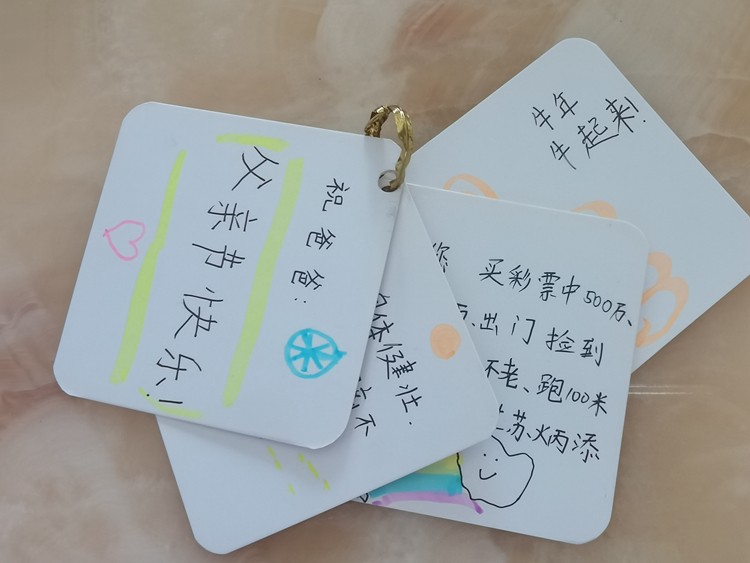 祝爸爸:
父亲节快乐!
体健壮.
不
买彩票中500万、
出门捡到
不老、跑100米
苏炳添
牛年
牛起来!